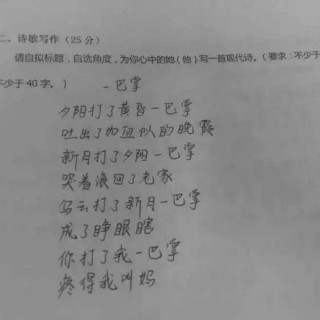 二、诗歌写作（25分）
请自拟标题，自选角度，为你心中的她（他）写一首现代诗。（要求：不少
不少于40字。）
一巴掌
夕阳打了黄昏一巴掌
吐出了血似的晚霞
新月打了夕阳一巴掌
哭着滚回了老家
乌云打了新月一巴掌
成了睁眼瞎
你打了我一巴掌
疼得我叫妈